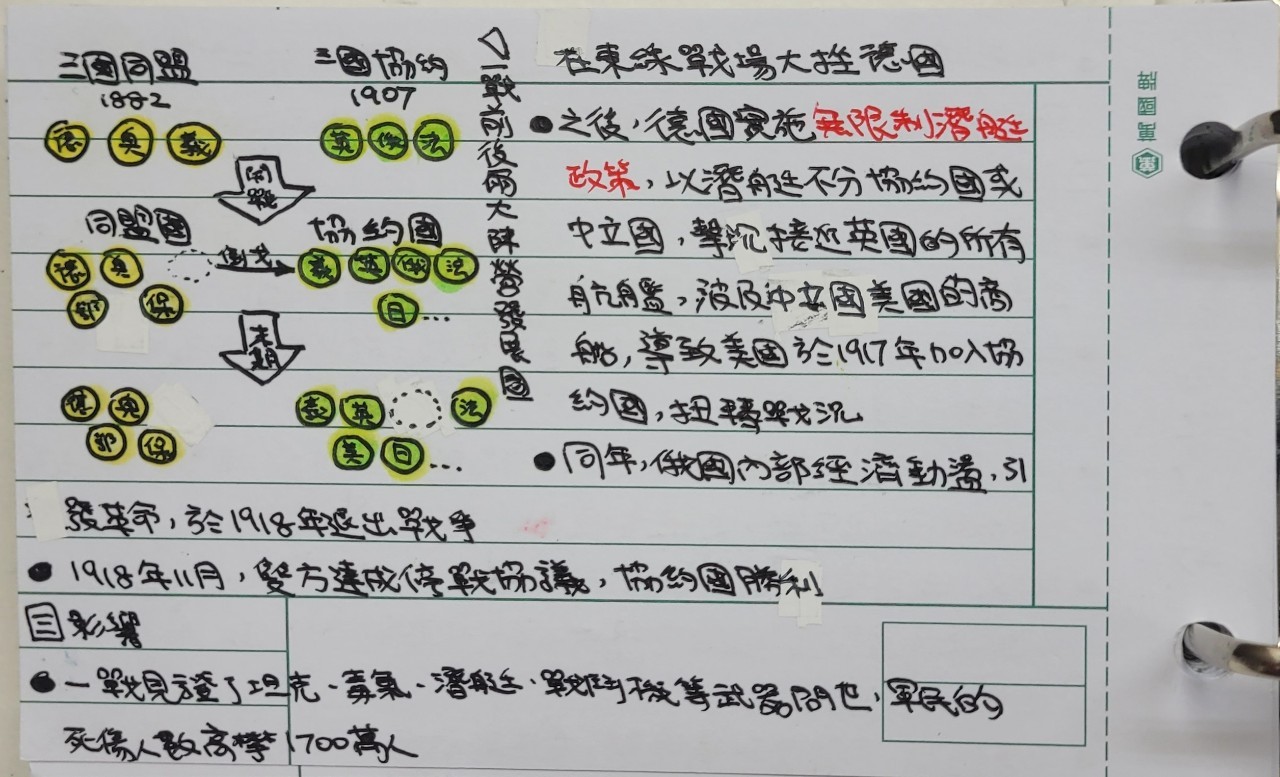 三國同盟 三國協約
1882 1907
德 奧 義 英 俄 法
開戰
同盟國 協約國
德 奧 倒戈 義 英 俄 法
鄂 保 日...
末期
德 奧 義 英 法
鄂 保 美 日...
△一戰前後兩大陣營發展圖
在東線戰場大挫德國
●之後,德國實施無限制潛艇
政策,以潛艇不分協約國或
中立國,擊沉接近英國的所有
航艦,波及中立國美國的商
船,導致美國於1917年加入協
約國,扭轉戰況
●同年,俄國內部經濟動盪,引
發革命,於1918年退出戰爭
●1918年11月,雙方達成停戰協議,協約國勝利
三 影響
●一戰見證了坦克、毒氣、潛艇、戰鬥機等武器問世,軍民的
死傷人數高攀1700萬人
萬國牌